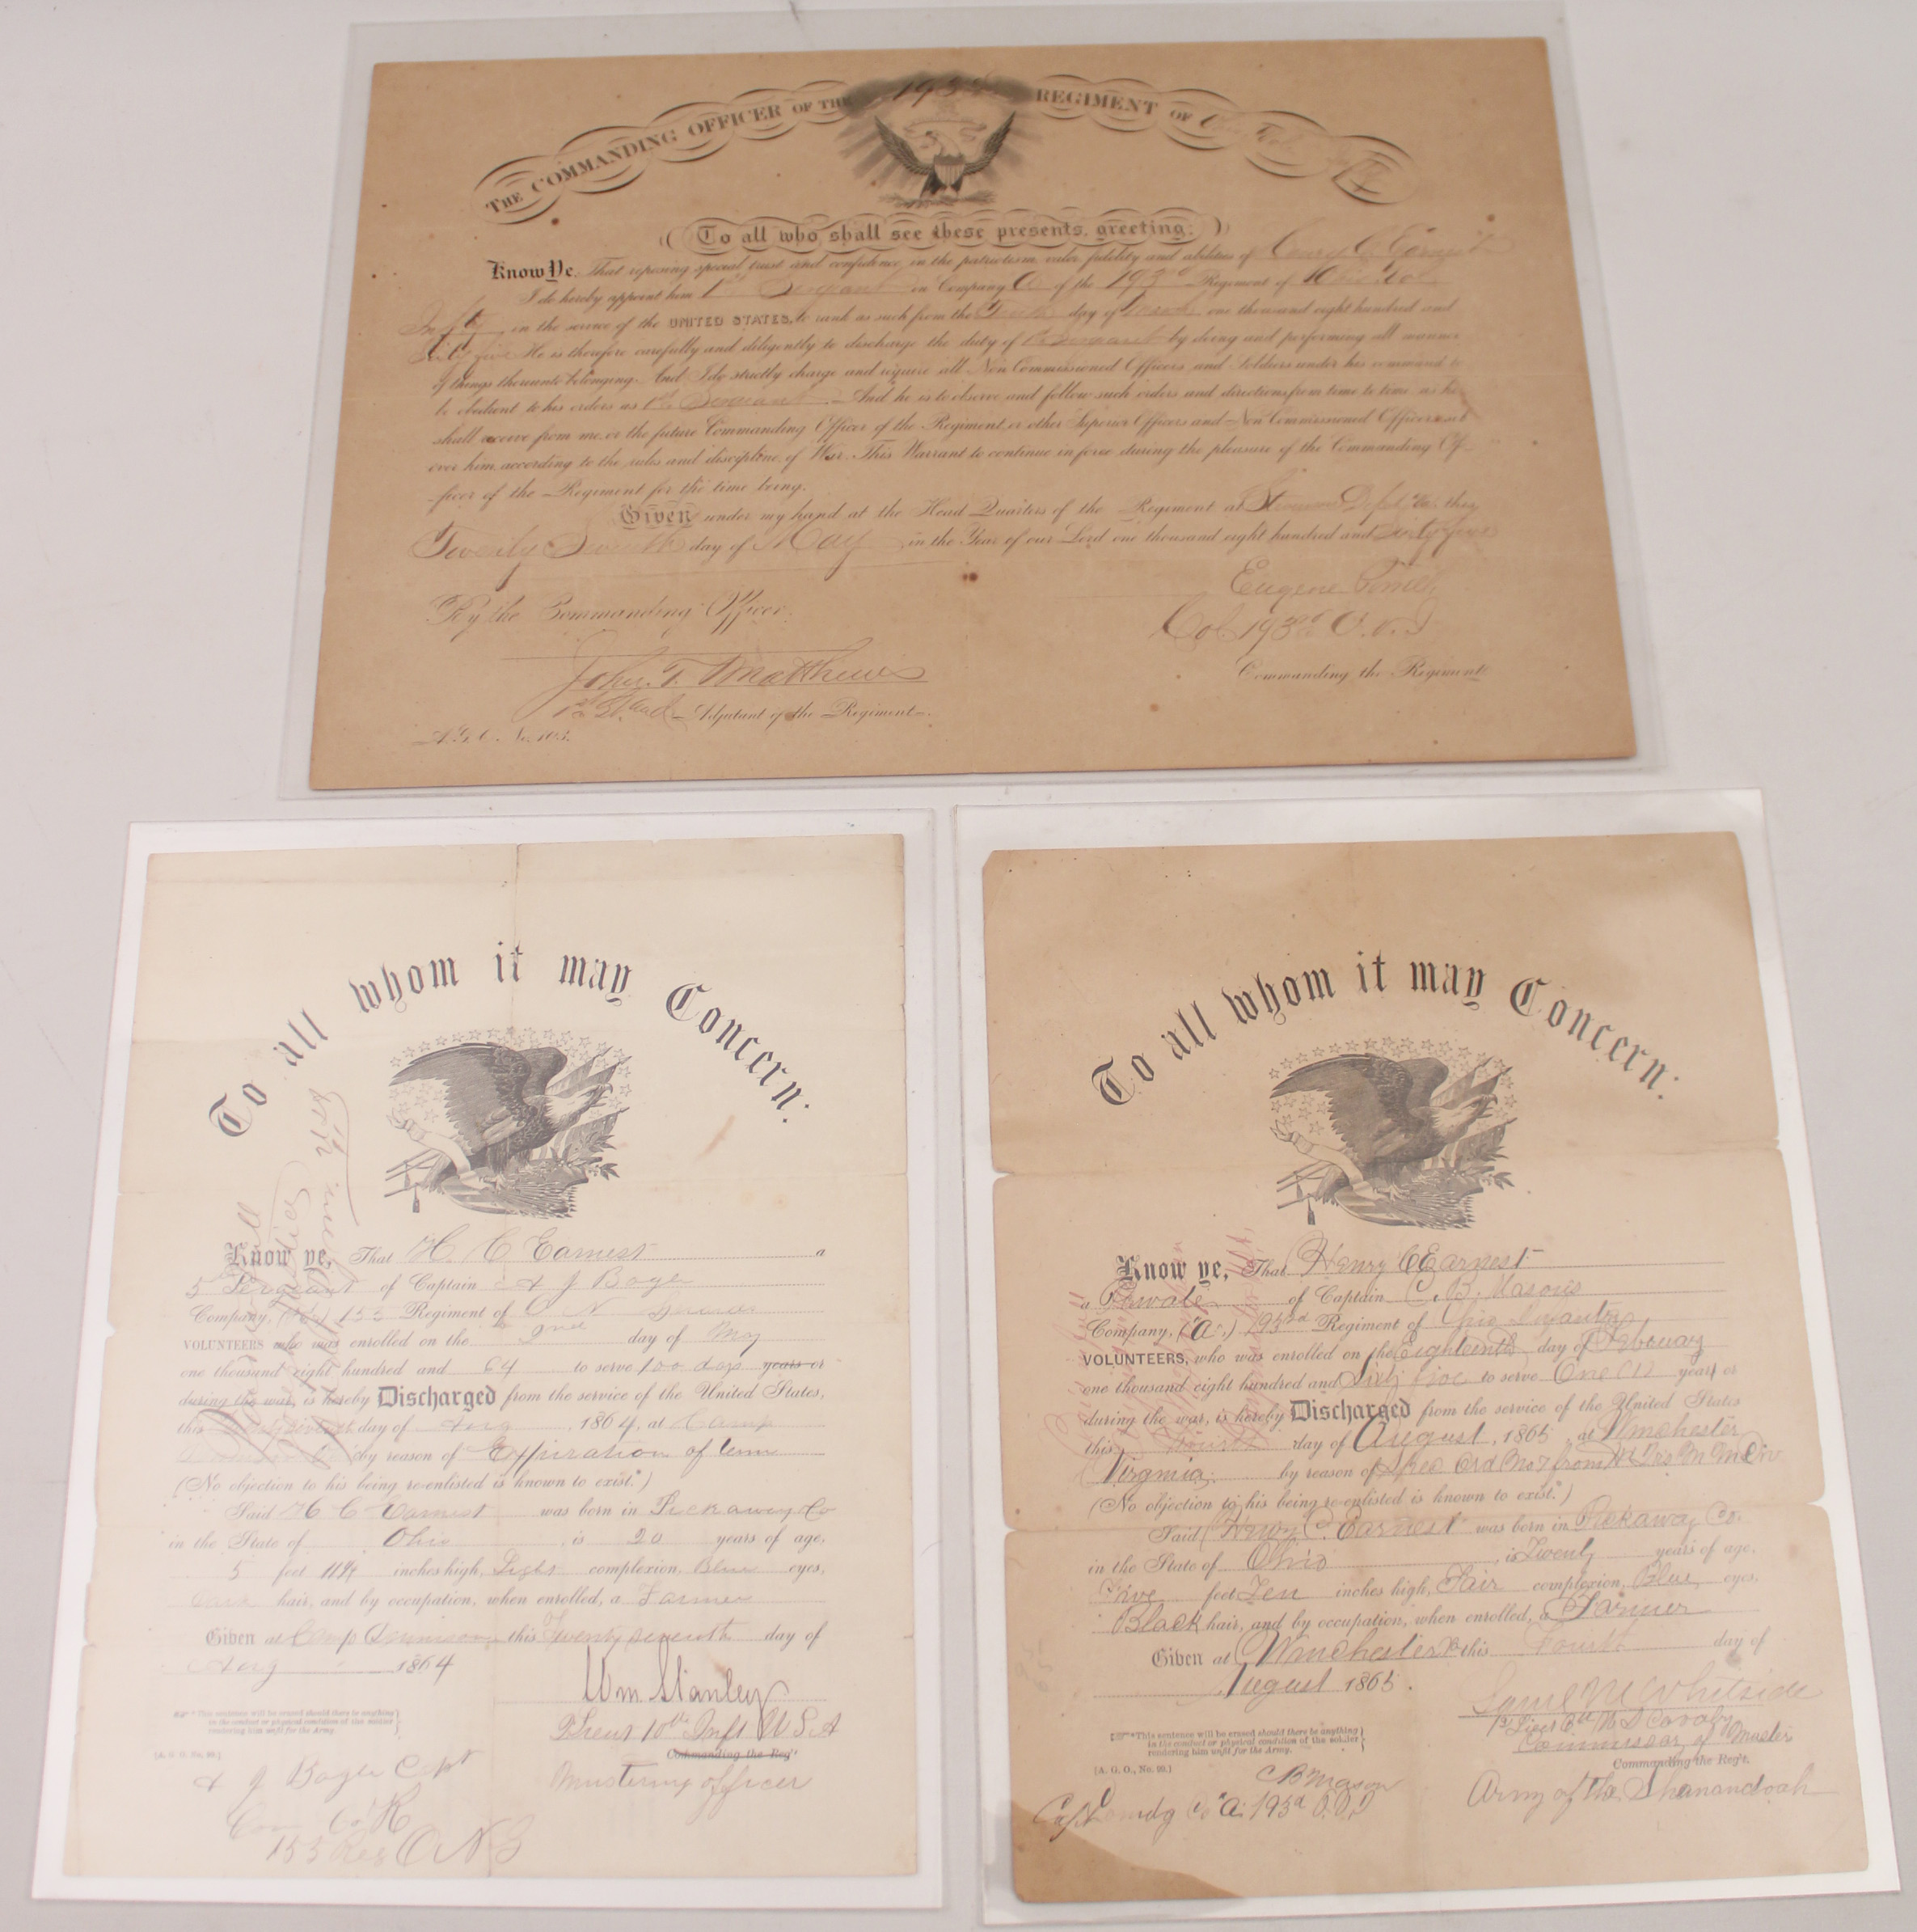 THE COMMANDING OFFICER OF THE 193d REGIMENT OF
To all who shall see these presents, greeting:
Know Ye, That reposing special trust and confidence in the patriotism, valor, fidelity and abilities of Henry C. Earnest
I do hereby appoint him 1st Sergeant in Company A of the 193d Regiment of Ohio Vol
Infty in the service of the UNITED STATES, to rank as such from the day of March one thousand eight hundred and
Sixty five He is therefore carefully and diligently to discharge the duty of Sergeant by doing and performing all manner
of things thereunto belonging. And I do strictly charge and require all Non Commissioned Officers and Soldiers under his command to
be obedient to his orders as 1st Sergeant. And he is to observe and follow such orders and directions from time to time as he
shall receive from me, or the future Commanding Officer of the Regiment, or other Superior Officers and Non Commissioned Officers set
over him, according to the rules and discipline of War. This Warrant to continue in force during the pleasure of the Commanding Of-
ficer of the Regiment for the time being.
Given under my hand at the Head Quarters of the Regiment at this
Twenty Seventh day of May in the Year of our Lord one thousand eight hundred and sixty five
By the Commanding Officer.
Eugene
Col 193d O.V.I
Commanding the Regiment.
John. T. Matthews
1st Lt. and Adjutant of the Regiment.
A.G.O. No. 103.
To all whom it may Concern:
Know ye, That H. C Earnest a
5 Sergeant of Captain
Company, 155 Regiment of O N
VOLUNTEERS who was enrolled on the 2nd day of May
one thousand eight hundred and 64 to serve 100 days years or
during the war, is hereby Discharged from the service of the United States,
this day of Aug, 1864, at Camp
by reason of Expiration of term
(No objection to his being re-enlisted is known to exist.*)
Said H C Earnest was born in Pickaway Co
in the State of Ohio, is 20 years of age,
5 feet 11 inches high, Light complexion, Blue eyes,
Dark hair, and by occupation, when enrolled, a Farmer
Given at Camp Dennison this Twenty seventh day of
Aug 1864
Wm Stanley
*This sentence will be erased should there be anything
in the conduct or physical condition of the soldier
rendering him unfit for the Army.
Lieut 10th Inft U S A
[A. G. O. No. 99.]
Commanding the Reg't
Mustering officer
Capt
Com Co
155 Reg O N G
To all whom it may Concern:
Know ye, That Henry C Earnest
a Private of Captain C. B. Masons
Company, (A.) 193rd Regiment of Ohio Infantry
VOLUNTEERS, who was enrolled on the Eighteenth day of February
one thousand eight hundred and Sixty five to serve One (1) years or
during the war, is hereby Discharged from the service of the United States
this Fourth day of August, 1865, at Winchester
Virginia, by reason of
(No objection to his being re-enlisted is known to exist.*)
Said Henry C. Earnest was born in Pickaway Co.
in the State of Ohio, is Twenty years of age,
Five feet Ten inches high, Fair complexion, Blue, eyes,
Black hair, and by occupation, when enrolled, a Farmer
Given at Winchester Va this Fourth day of
August 1865.
Whitside
*This sentence will be erased should there be anything
in the conduct or physical condition of the soldier
rendering him unfit for the Army.
Commissary of Muster
[A. G. O., No. 99.]
Commanding the Reg't.
C B Mason
Army of the Shenandoah
Capt Comdg Co "A" 193d O.V.I